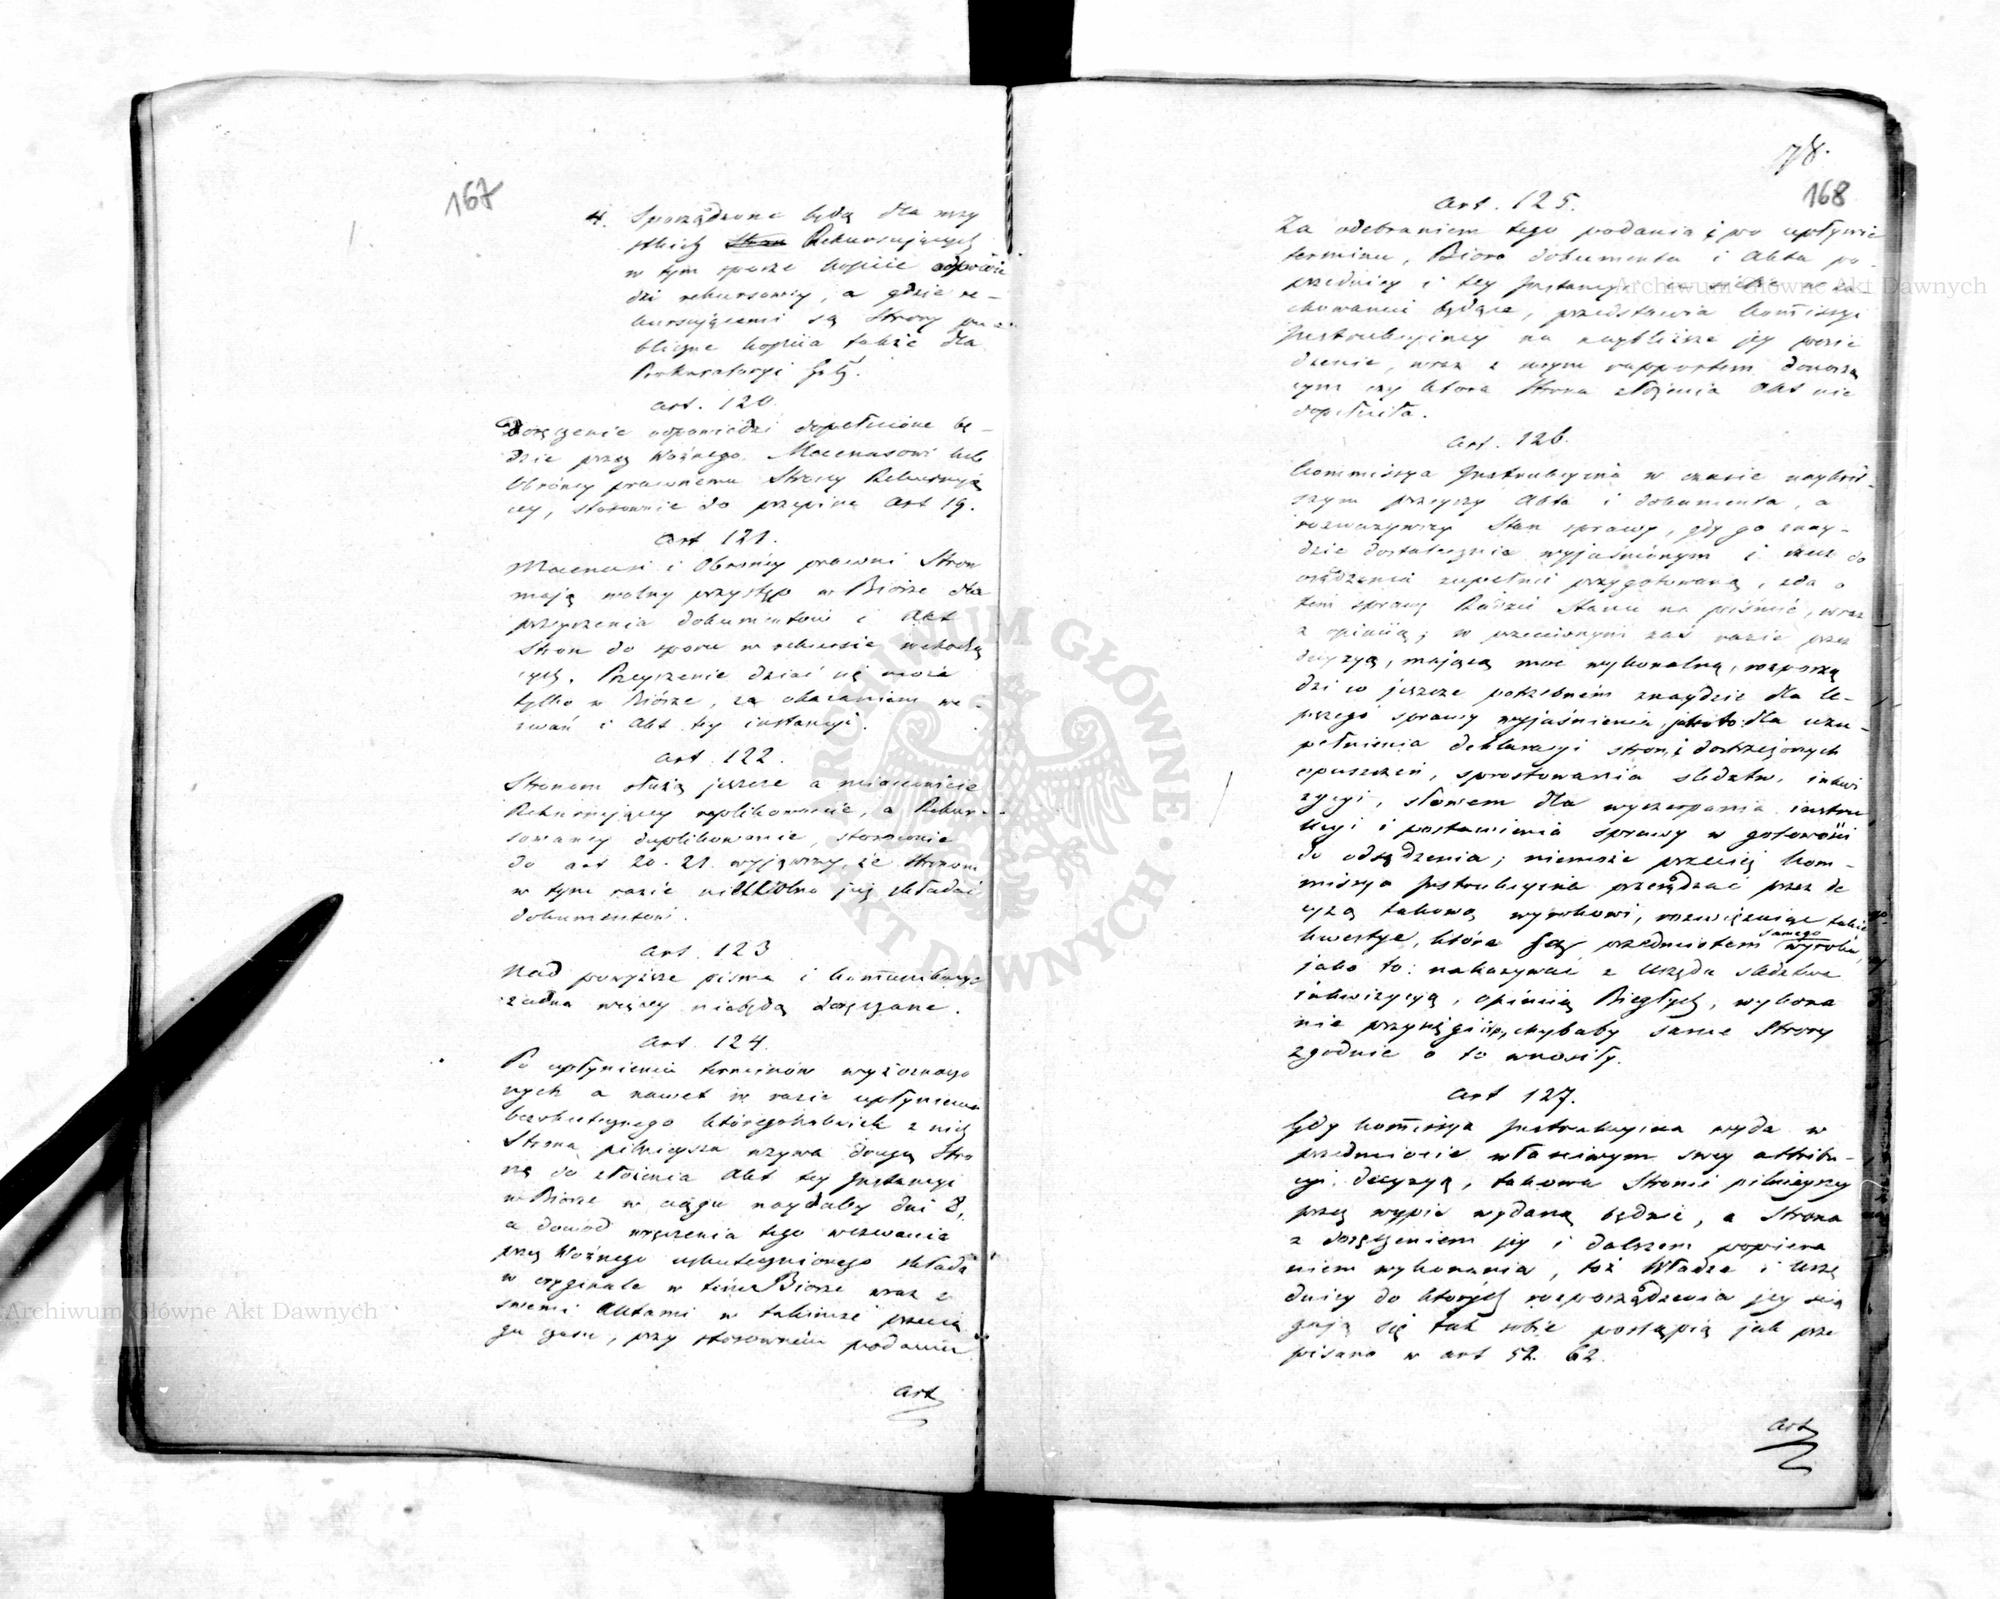 167
4. Sporządzone będą dla wszy
stkich Stron Rekursujących
w tym sporze kopiie odpowie
dzi rekursowey, a gdzie re-
kursującemi są Strony pu-
bliczne kopiia także dla
Prokuratoryi
Art. 120.
Doręczenie odpowiedzi dopełnione bę-
dzie przez Woźnego Mecenasowi lub
Obrońcy prawnemu Strony Rekursują
cey, stosownie do przepisu Art 19.
Art 121.
Mecenasi i Obrońcy prawni Stron
mają wolny przystęp w Biórze dla
przeyrzenia dokumentów i Akt
Stron do sporu w rekursie wchodzą
cych. Przeyrzenie dziać się może
tylko w Biórze, za okazaniem we-
zwań i Akt tey instancyi.
Art. 122.
Stronom służą jeszcze a mianowicie
Rekursującey replikowanie, a Rekur-
sowaney duplikowanie, stosownie
do art 20. 21. wyjąwszy, że Stronom
w tym razie niewolno już składać
dokumentów.
Art. 123
Nad powyższe pisma i kommunikacye
żadne więcey niebędą doręczane.
Art. 124.
Po upłynieniu terminów wyżoznaczo
nych a nawet w razie upłynienia
bezskutecznego któregokolwiek z nich
Strona pilnieysza wzywa drugą Stro
nę do złożenia Akt tey Instancyi
w Biórze w ciągu naydaley dni 8,
a dowód wręczenia tego wezwania
przez Woźnego uskutecznionego składa
w oryginale w témże Biórze wraz z
swemi Aktami w takimże przecią
gu czasu, przy stosownem podaniu
Art
78.
168
Art. 125.
Za odebraniem tego podania i po upływie
terminu, Bióro dokumenta i Akta po-
przedniey i tey Instancyi u siebie w za-
chowaniu będące, przedstawia Kommissyi
Instrukcyiney na naybliższe jey posie
dzenie, wraz z swym rapportem donoszą
cym czy która Strona złożenia Akt nie
dopełniła.
Art. 126.
Kommissya Instrukcyina w czasie naykrót-
szym przeyrzy Akta i dokumenta, a
rozważywszy Stan sprawy, gdy go znay-
dzie dostatecznie wyjaśnionym i rzecz do
osądzenia zupełnie przygotowaną, zda o
tem sprawę Radzie Stanu na piśmie, wraz
z opiniią; w przeciwnym zaś razie przez
decyzyą, mającą moc wykonalną, rozporzą
dzi co jeszcze potrzebném znaydzie dla le-
pszego sprawy wyjaśnienia, jakoto: dla uzu-
pełnienia deklaracyi stron, i dostrzeżonych
opuszczeń, sprostowania śledztw, inkwi
zycyi, słowem dla wyczerpania instru
kcyi i postawienia sprawy w gotowości
do odsądzenia; niemoże przecież Kom-
missya Instrukcyina przesądzać przez de
cyzyą takową wyrokowi, rozwiązując takie
kwestye, które są przedmiotem samego wyroku,
jako to: nakazywać z Urzędu śledztwa
inkwizycyą, opiniią Biegłych, wykona
nie przysięgi itp, chybaby same Strony
zgodnie o to wnosiły.
Art 127.
Gdy Kommissya Instrukcyina wyda w
przedmiocie właściwym swey attribu-
cyi decyzyą, takowa Stronie pilnieyszey
przez wypis wydaną będzie, a Strona
z doręczeniem jey i dalszem popiera
niem wykonania, toż Władze i Urzę
dnicy do których rozporządzenia jey się
gają się tak sobie postąpią jak prze
pisano w art 52. 62.
Art
Archiwum Główne Akt Dawnych
Archiwum Główne Akt Dawnych
ARCHIWUM GŁÓWNE AKT DAWNYCH